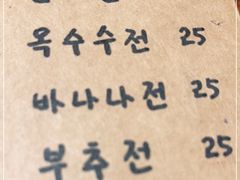 옥수수전 25
바나나전 25
부추전 25